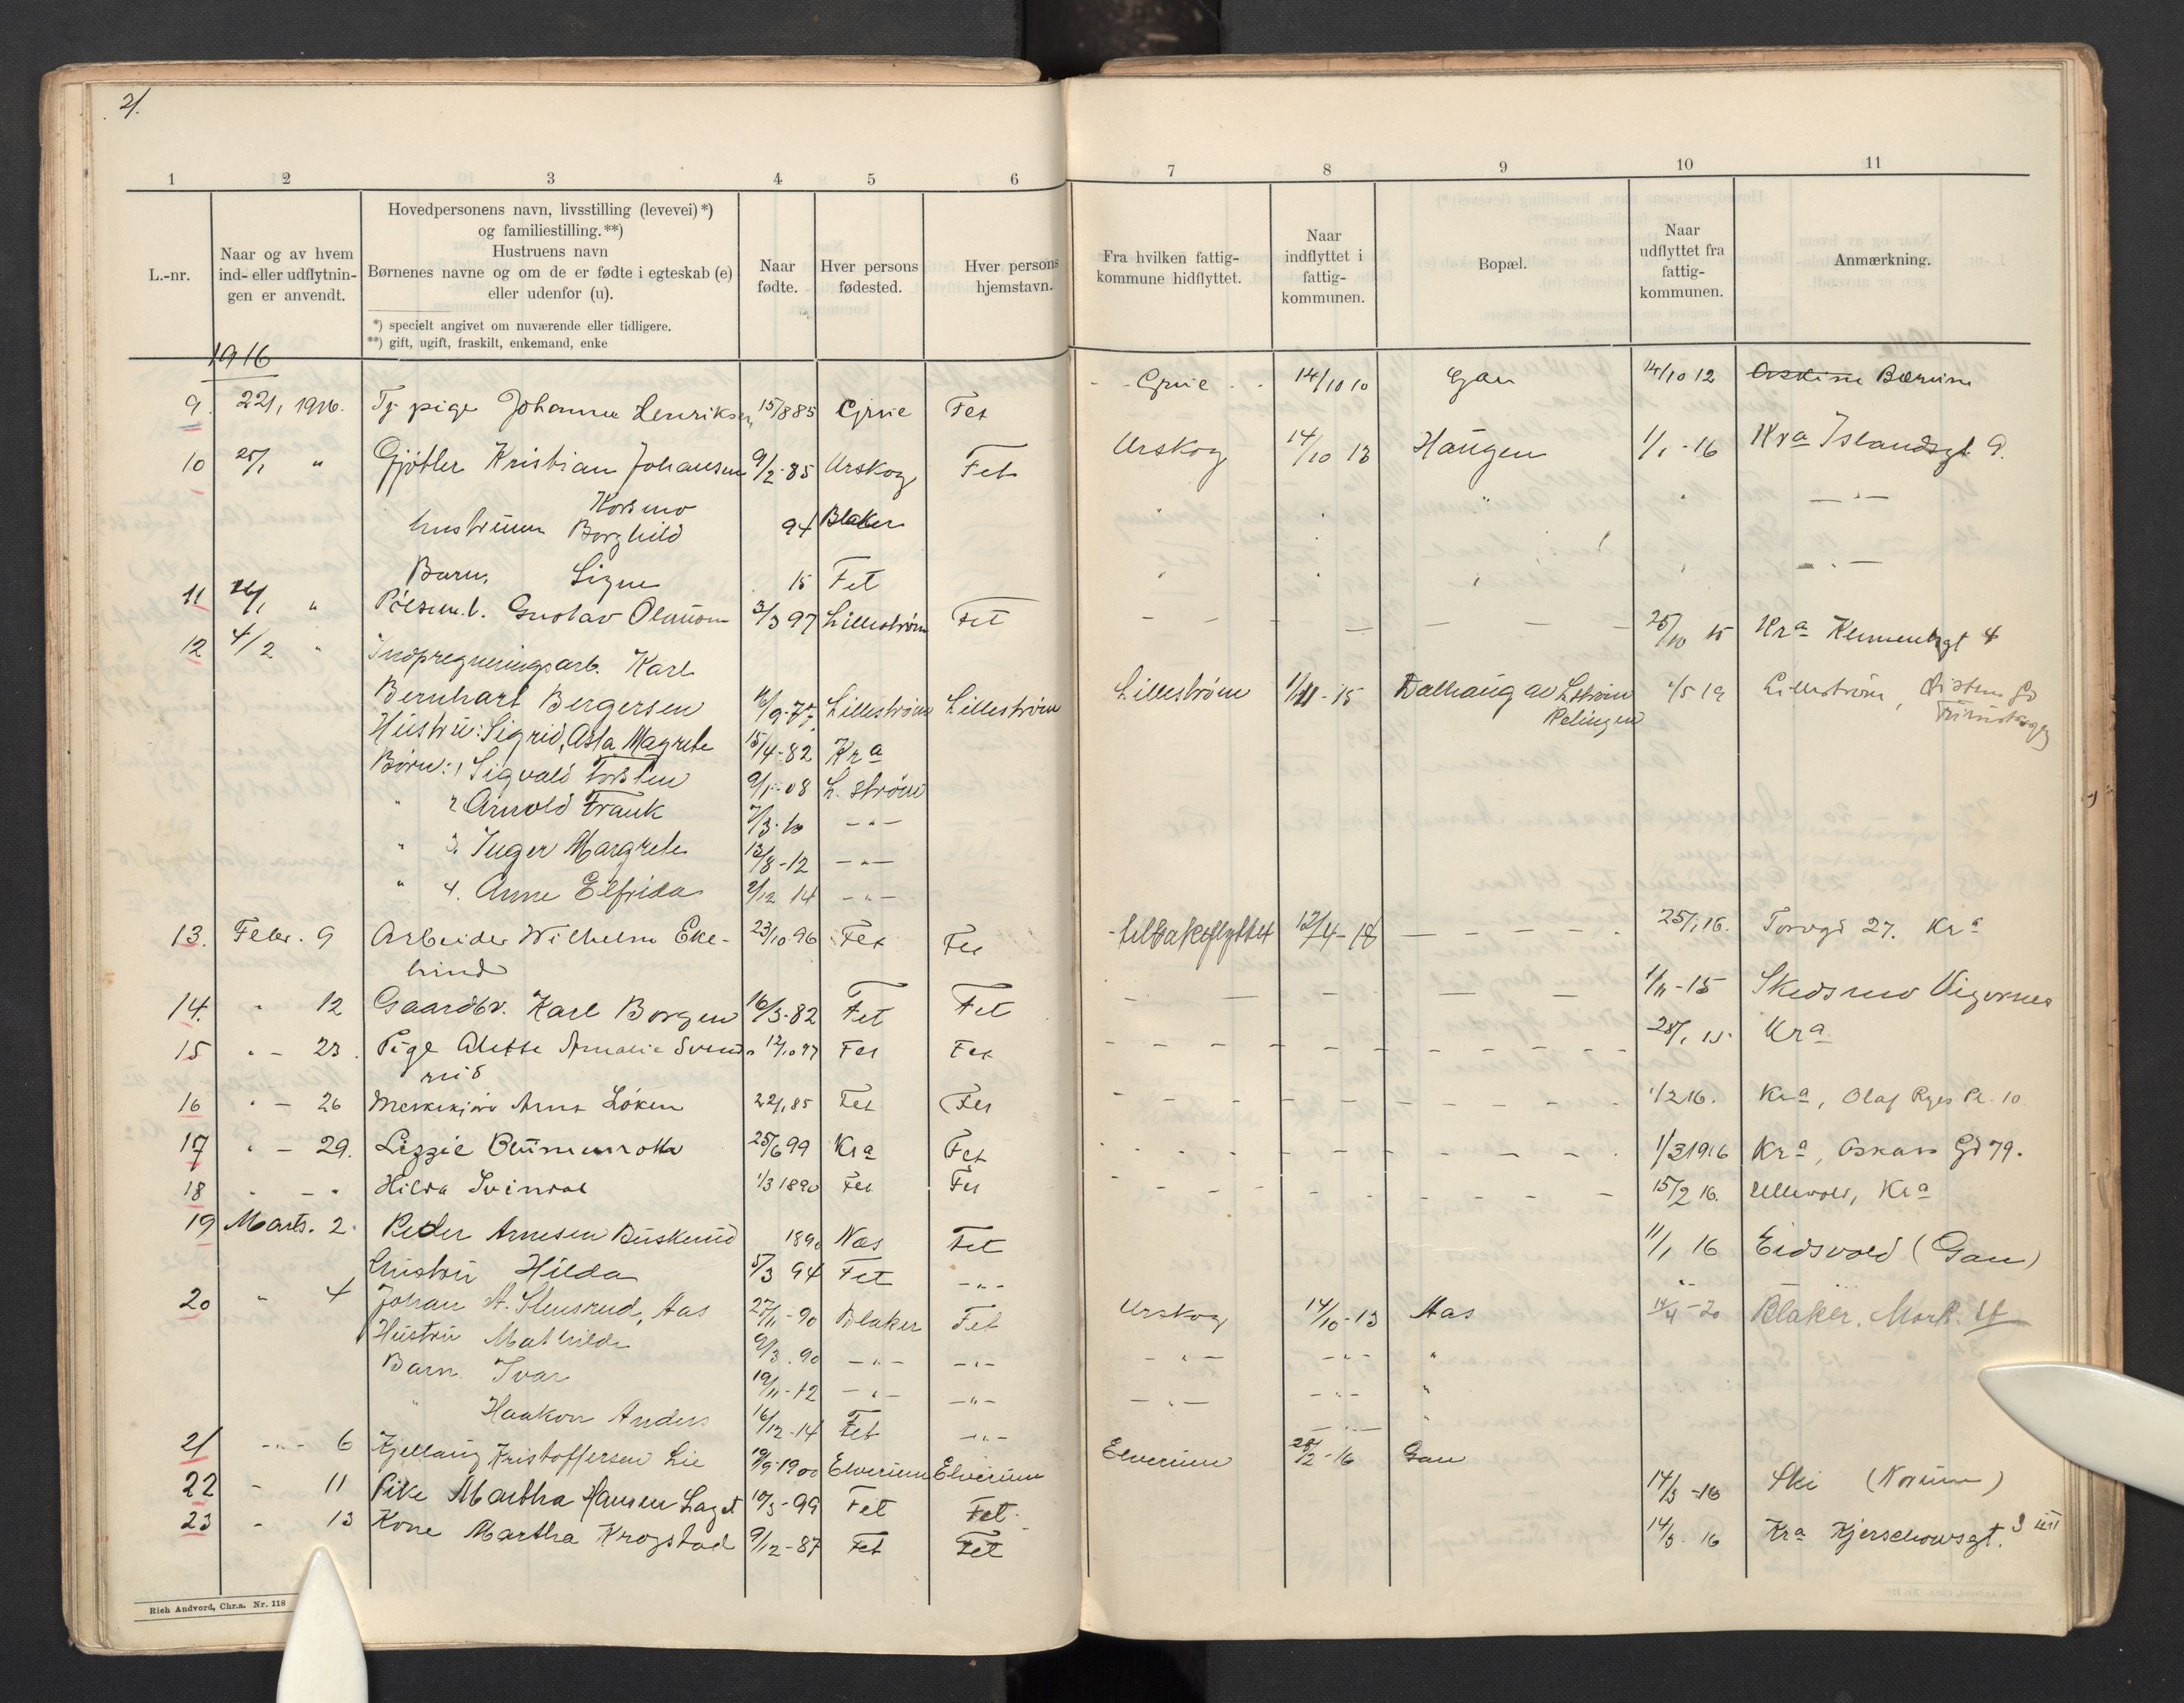 21.
1 2 3 4 5 6 7 8 9 10 11
L.-nr.
Naar og av hvem
ind- eller udflytnin-
gen er anvendt.
Hovedpersonens navn, livsstilling (levevei)*)
og familiestilling.**)
Hustruens navn
Børnenes navne og om de er fødte i egteskab (e)
eller udenfor (u).
*) specielt angivet om nuværende eller tidligere.
**) gift, ugift, fraskilt, enkemand, enke
Naar
fødte.
Hver persons
fødested.
Hver persons
hjemstavn.
Fra hvilken fattig-
kommune hidflyttet.
Naar
indflyttet i
fattig-
kommunen.
Bopæl.
Naar
udflyttet fra
fattig-
kommunen.
Anmærkning.
1916
9. 22/1 1916. Tj pige Johanne Henriksen 15/8 85 Grue Fet - - Grue - - 14/10 10 Gan 14/10 12 Bærum
10 25/1 " Gjøtler Kristian Johansen 9/2-85 Urskog Fet Urskog 14/10 13 Haugen 1/1-16 Kra Islandsgt 9.
Kosmo
hustruen Borghild 94 Blaker " " " " — " —
Barn. Signe 15 Fet " " " — " —
11 26/1 " Gustav Olausen 3/3 97 Lillestrøm Fet — — — — — 25/10 15 Kra 4
12 4/2 " Impregneringsarb. Karl
Bernhart Bergersen 16/9-77 Lillestrøm Lillestrøm Lillestrøm 1/11-15 Dalhaug av L.strøm 1/5 19 Lillestrøm,
Relingen
Hustru: Sigrid, Asta Magrete 15/4-82 Kra
Børn: 1 Sigvald Torsten 9/1-08 L. strøm
" 2 Arnold Frank 7/3-10 — " —
" 3. Inger Margrete 12/8-12 — " —
" 4. Anne Elfrida 9/12 14 — " —
13. Febr. 9 Arbeider Wilhelm Eke- 23/10 96 Fet Fet - tilbakeflyttet 12/4-18 — — — — 25/1 16. Torvgt 27. Kra
lund
14. " 12 Gaardbr. Karl Borgen 16/3-82 Fet Fet — — — — — 1/11-15 Skedsmo Vigernes
15 " - 23. Pige Alette Amalie Svend- 12/10 97 Fet Fet - - - - - 28/1 15. Kra
rud
16 " - 26 Arne Løken 22/1 85 Fet Fet - - - - - 1/2 16. Kra, Olaf Ryes Pl. 10
17 " - 29. Lizzie Blumenroth 25/6 99 Kra Fet - - - - - 1/3 1916 Kra, Oskars Gt 79.
18 " - " Hilda Svindal 1/3 1890 Fet Fet - - - - - 15/2 16. Ullevold, Kra
19 Marts. 2. Peder Arnesen Buskerud 1890 Nes Fet 11/1 16 Eidsvold (Gan)
hustru Hilda 5/3 94 Fet — " — "
20 " 4 Johan A. Slensrud, Aas 27/11-90 Blaker Fet Urskog 14/10-13 Aas 14/4-20 Blaker.
Hustru Mathilde 9/3.90 — " — — " — — " — — " — "
Barn. Ivar 19/11-12 — " — — " — — " — — " — "
" Haakon Anders 16/12-14 Fet — " — — " — "
21 — " — 6 Kjellaug Kristoffersen Lie 19/9-1900 Elverum Elverum Elverum 28/2-16 Gan
22 " 11 Pike Martha Hansen Laget 10/3-99 Fet Fet. 14/3-16 Ski
23 " 13 Kone Martha Krogstad 9/12-87 Fet Fet 14/3-16 Kra Kjerschowsgt. 3 III
Rich Andvord, Chr.a. Nr. 118